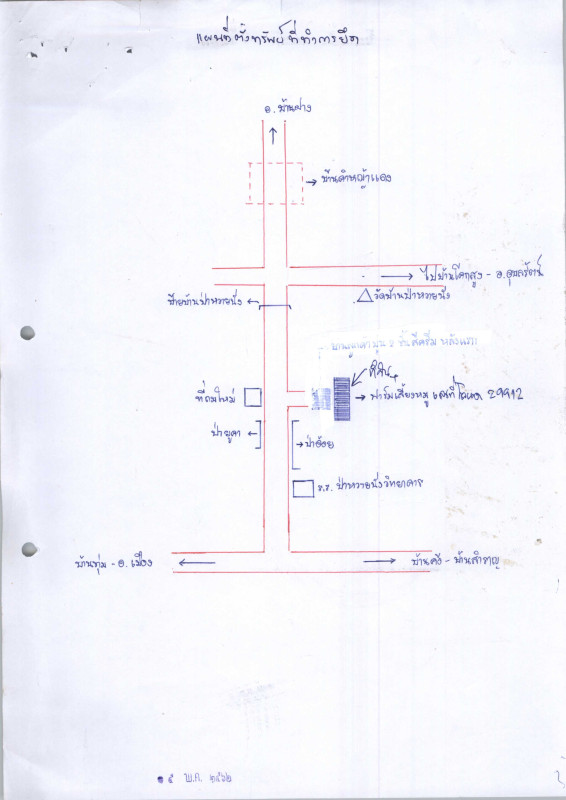 แผนที่ตั้งทรัพย์ที่ทำการยึด
อ.บ้านฝาง
บ้านคำหญ้าแดง
ไปบ้านโคกสูง - อ.อุบลรัตน์
ป้ายบ้านป่าหวายนั่ง
วัดบ้านป่าหวายนั่ง
2 ชั้น สีครีม หลังแรก
ที่ดิน
ที่ถมใหม่
ฟาร์มเลี้ยงหมู เลขที่โฉนด 29912
ป่ายูคา
ป่าอ้อย
ร.ร. ป่าหวายนั่งวิทยาคาร
บ้านทุ่ม - อ.เมือง
บ้านสำราญ
๑๕ พ.ค. ๒๕๖๒